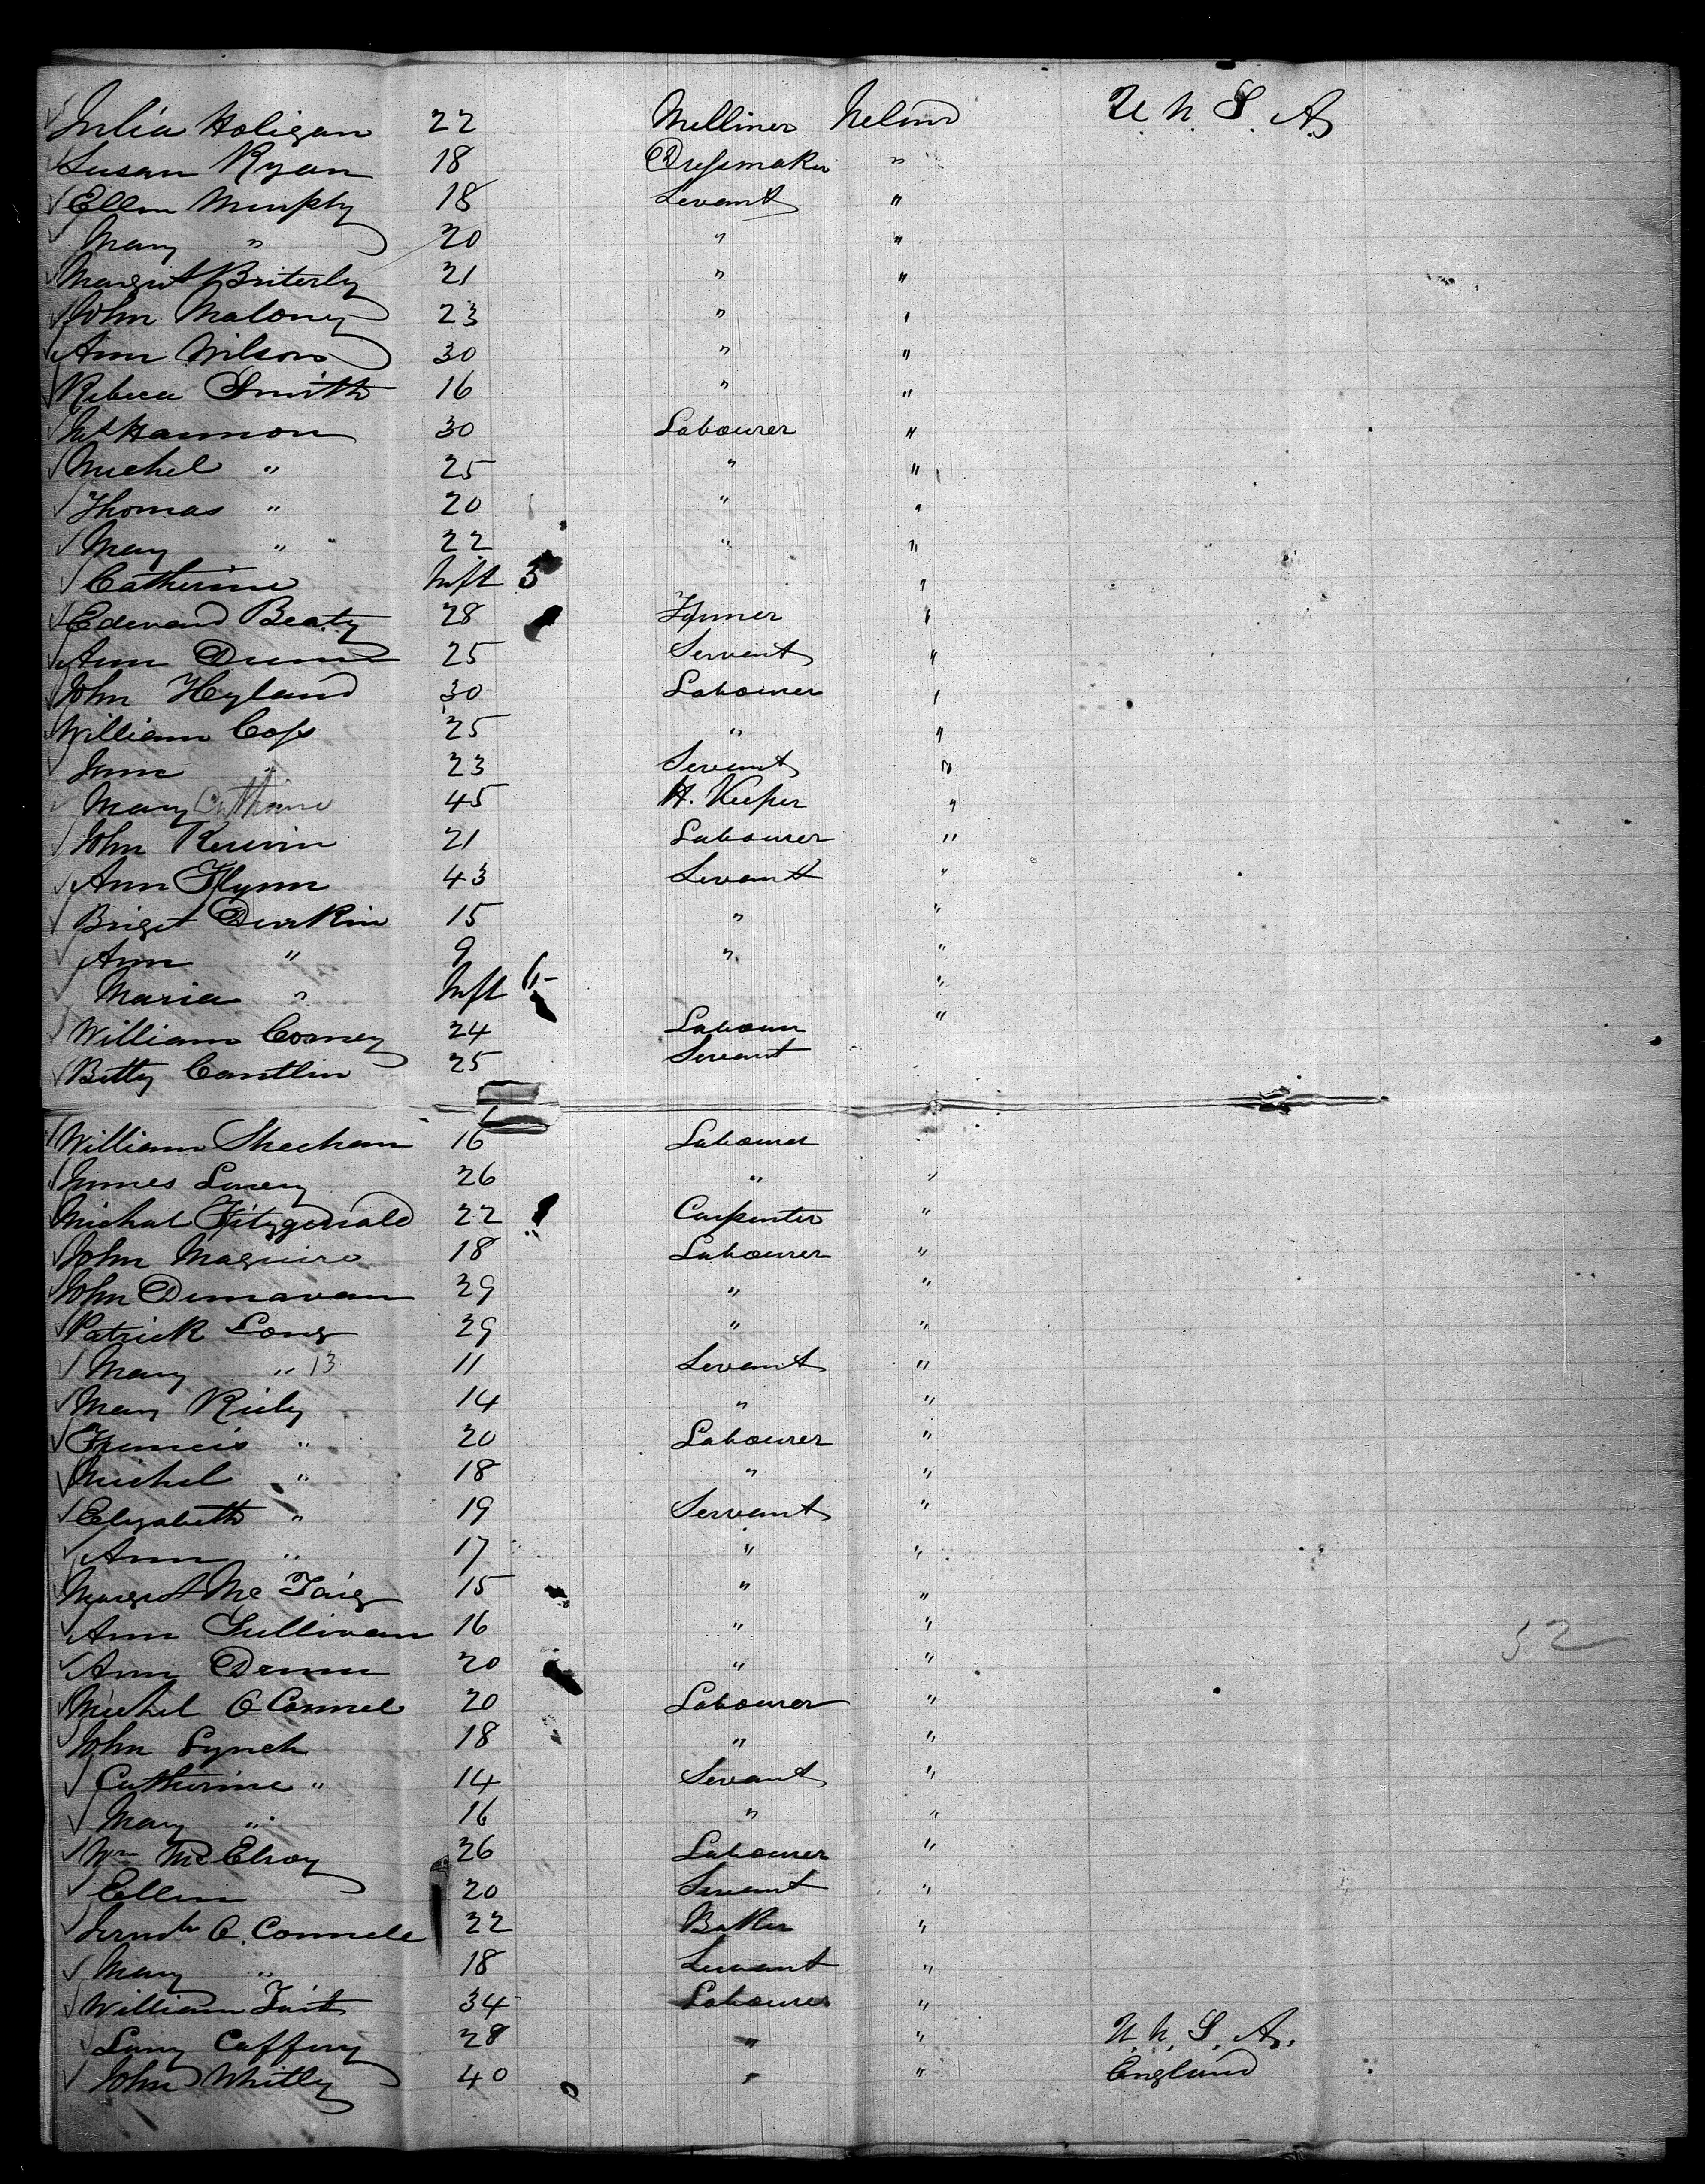 Julia Holigan 22 Milliner Ireland U. N. S. A.
Susan Ryan 18 Dressmaker "
Ellen Murphy 18 Servant "
Mary " 20 " "
Margret Briterly 21 " "
John Maloney 23 " "
Ann Wilson 30 " "
Rebeca Smith 16 " "
Hannon 30 Labourer "
Michel " 25 " "
Thomas " 20 " "
Mary " 22 " "
Catherine Inft 3 "
Edward Beaty 28 Farmer "
Ann Dunn 25 Servant "
John Hyland 30 Labourer "
William Coss 25 " "
Jane " 23 Servant "
Mary Catherine 45 H. Keeper "
John Kerwin 21 Labourer "
Ann Flynn 43 Servant "
Briget Durkin 15 " "
Ann " 9 " "
Maria " Inft 6 "
William Comey 24 Labourer "
Betty Cantlin 25 Servant
William Sheehan 16 Labourer "
James 26 " "
Michal Fitzgerald 22 Carpenter "
John Maguire 18 Labourer "
John Dunnavan 29 " "
Patrick Long 29 " "
Mary " 13 11 Servant "
Mary Riely 14 " "
Francis " 20 Labourer "
Michel " 18 " "
Elizabeth " 19 Servant "
Ann " 17 " "
Margret Mc Taig 15 " "
Ann Sullivan 16 " " 52
Ann Drum 20 " "
Michel O Connel 20 Labourer "
John Lynch 18 " "
Catherine " 14 Servant "
Mary " 16 " "
Wm McElroy 26 Labourer "
Ellen 20 Servant "
O. Connell 22 Baker "
Mary " 18 Servant "
William Tait 34 Labourer "
Caffery 28 " " U. N. S. A.
John Whitly 40 " " England